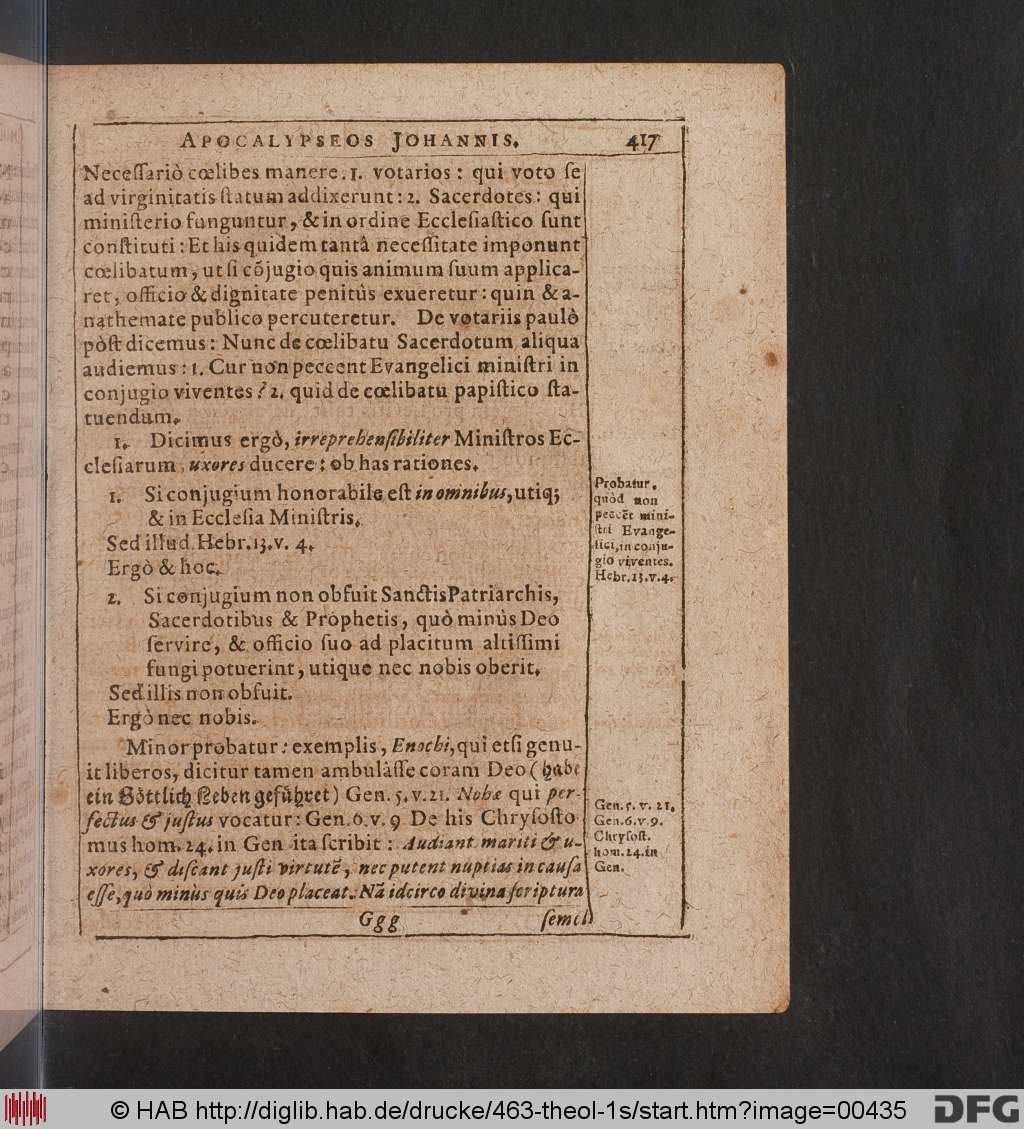 APOCALYPSEOS JOHANNIS. 417
Neceſſariò cœlibes manere. 1. votarios: qui voto ſe
ad virginitatis ſtatum addixerunt: 2. Sacerdotes: qui
miniſterio funguntur, & in ordine Eccleſiaſtico ſunt
conſtituti: Et his quidem tantâ neceſſitate imponunt
cœlibatum, ut ſi cõjugio quis animum ſuum applica-
ret, officio & dignitate penitùs exueretur: quin & a-
nathemate publico percuteretur. De votariis paulò
pòſt dicemus: Nunc de cœlibatu Sacerdotum aliqua
audiemus: 1. Cur non peccent Evangelici miniſtri in
conjugio viventes? 2. quid de cœlibatu papiſtico ſta-
tuendum.
1. Dicimus ergò, irreprehenſibiliter Miniſtros Ec-
cleſiarum, uxores ducere: ob has rationes.
1. Si conjugium honorabile eſt in omnibus, utiq;
& in Eccleſia Miniſtris.
Sed illud. Hebr. 13. v. 4.
Ergò & hoc.
2. Si conjugium non obfuit Sanctis Patriarchis,
Sacerdotibus & Prophetis, quò minùs Deo
ſervire, & officio ſuo ad placitum altiſſimi
fungi potuerint, utique nec nobis oberit.
Sed illis non obfuit.
Ergò nec nobis.
Minor probatur: exemplis, Enochi, qui etſi genu-
it liberos, dicitur tamen ambulâſſe coram Deo (habe
ein Göttlich Leben geführet) Gen. 5. v. 21. Nohæ qui per-
fectus & juſtus vocatur: Gen. 6. v. 9 De his Chryſoſto
mus hom. 24. in Gen ita ſcribit: Audiant mariti & u-
xores, & diſcant juſti virtutẽ, nec putent nuptias in cauſa
eſſe, quò minùs quis Deo placeat. Nã idcirco divina ſcriptura
Ggg ſemel
Probatur.
quòd non
peccẽt mini-
ſtri Evange-
lici, in conju-
gio viventes.
Hebr. 13. v. 4.
Gen. 5. v. 21.
Gen. 6. v. 9.
Chryſoſt.
hom. 24. in
Gen.
© HAB http://diglib.hab.de/drucke/463-theol-1s/start.htm?image=00435
DFG